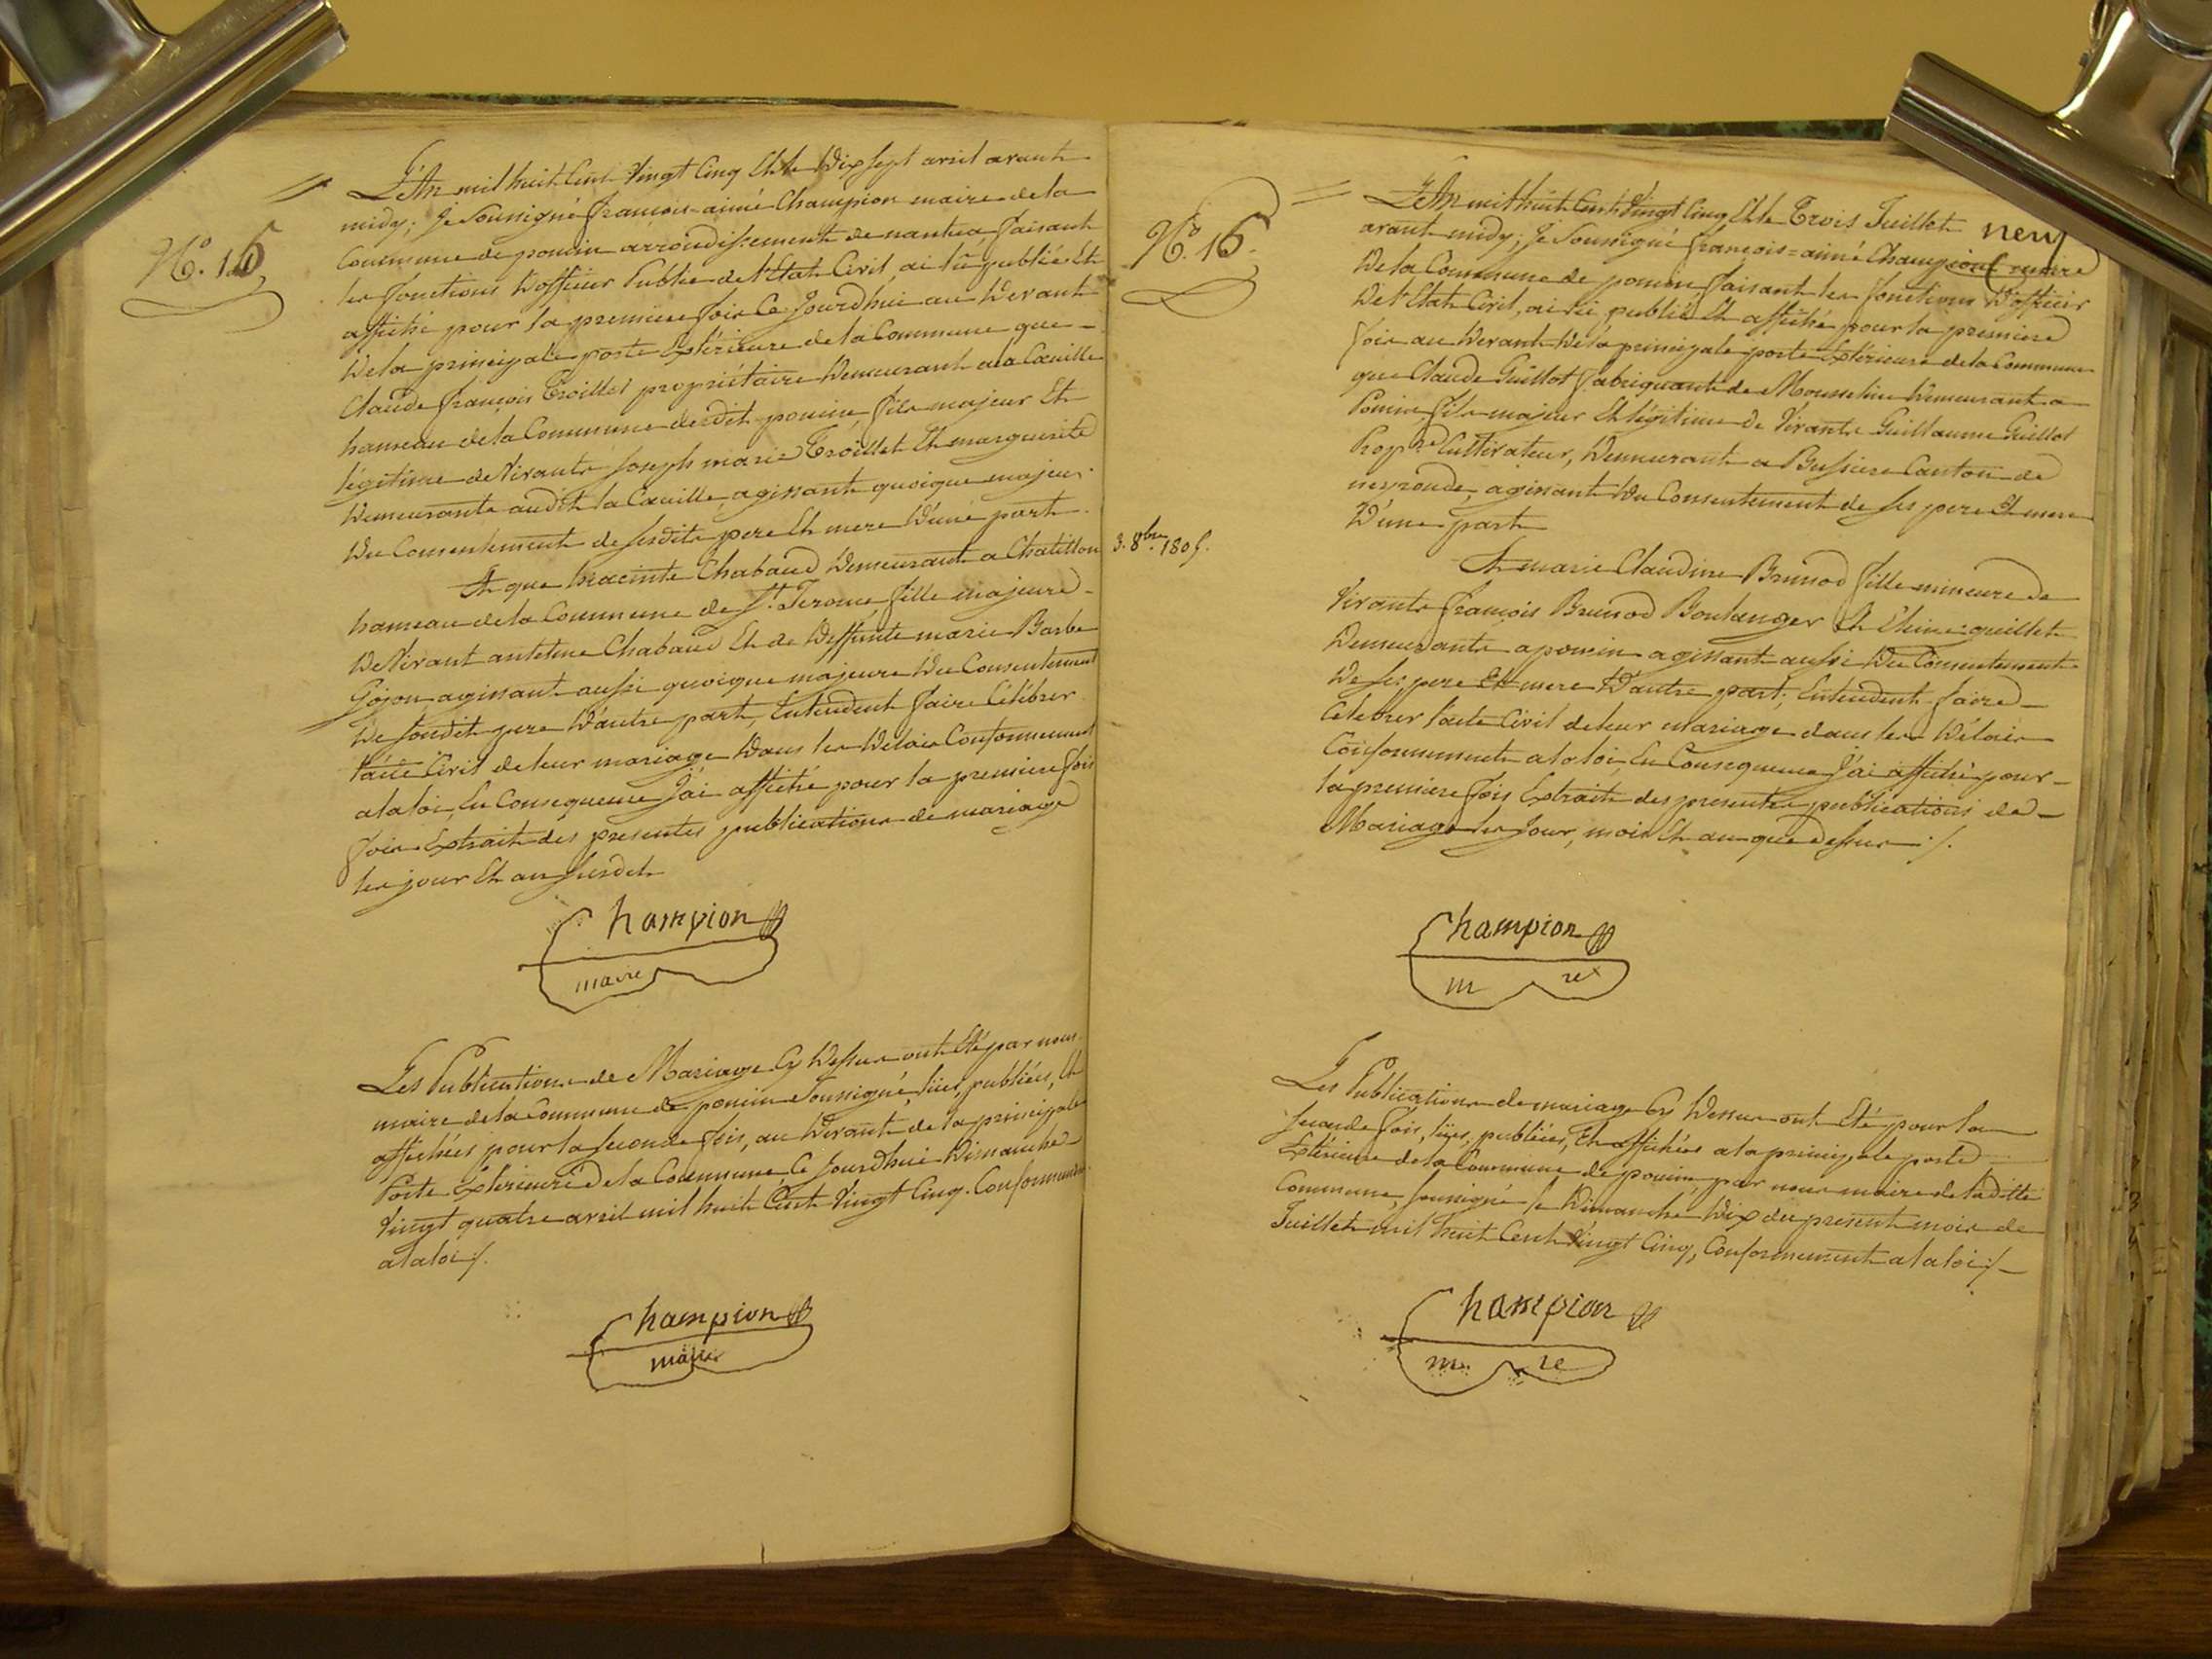 N.º 15
L'An mil huit Cent Vingt Cinq Et le Dix Sept avril avant
midy; Je Soussigné françois-aimé Champion maire de la
Commune de poncin arrondissement de nantua, faisant
les fonctions D'officier Public de l'Etat Civil, ai lû publié Et
affiché pour la premiere fois Ce Jourdhui au Devant
De la principale porte Extérieure de la Commune que –
Claude françois Troillet propriétaire Demeurant a la Cueille
hameau de la Commune dudit poncin, fils majeur Et
légitime de Vivants Joseph marie Troillet Et marguerite
Demeurants audit la Cueille, agissant quoique majeur
Du Consentement de sesdits pere Et mere D'une part
Et que hiacinte Chabaud Demeurant a Chatillon
hameau de la Commune de St. Jerome, fille majeure –
De Vivant antelme Chabaud Et de Deffunte marie Barbe
Gojon, agissant aussi quoique majeure Du Consentement
De sondit pere D'autre part, Entendent faire Célébrer
l'acte Civil de leur mariage Dans les Délais Conformement
a la loi, En Consequence J'ai affiché pour la premiere fois
fois Extrait des presentes publications de mariage
les jour Et an susdit
Champion
maire
Les Publications de Mariage Cy Dessus ont Eté par nous
maire de la Commune de poncin Soussigné, lües, publiées, Et
affichées pour la seconde fois, au Devant de la principale
Porte Extérieure de la Commune Ce Jourdhui Dimanche
Vingt quatre avril mil huit Cent Vingt Cinq. Conformement
a la loi /.
Champion
maire
N.º 16.
3. 8bre 1805.
L'An mil huit Cent Vingt Cinq Et le Trois Juillet neuf
avant midy; Je Soussigné françois=aimé Champion maire
De la Commune de poncin faisant les fonctions D'officier
De l'Etat Civil, ai lû, publié Et affiché pour la premiere
fois au Devant De la principale porte Extérieure de la Commune
que Claude Guillot fabriquant de Mousseline Demeurant a
Poncin, fils majeur Et légitime de Vivants Guillaume Guillot
Propre Cultivateur, Demeurant a Bussiere Canton de
neyronde, agissant Du Consentement de ses pere Et mere
D'une part
Et marie Claudine Brunod fille mineure de
Vivants françois Brunod Boulanger Et guillet
Demeurants a poncin agissant aussi Du Consentement
De ses pere Et mere D'autre part; Entendent faire –
Celebrer l'acte Civil de leur mariage dans les Délais
Conformement a la loi, En Consequence J'ai affiché pour –
la premiere fois Extrait des presentes publications de –
Mariage les Jour, mois Et an que dessus /.
Champion
m re
Les Publications de mariage Cy Dessus ont Eté pour la
seconde fois, lües, publiées, Et affichées a la principale porte
Extérieure de la Commune de poncin, par nous maire de laditte
Commune, soussigné le Dimanche Dix du present mois de
Juillet mil huit Cent Vingt Cinq, Conformement a la loi /–
Champion
m re